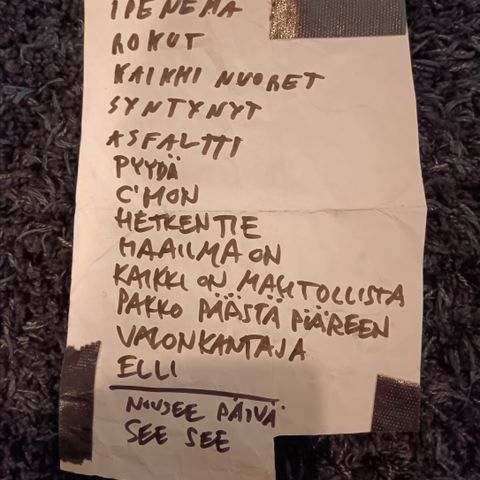 IPENEMA
ROKUT
KAIKKI NUORET
SYNTYNYT
ASFALTTI
PYYDÄ
C'MON
HETKEN TIE
MAAILMA ON
KAIKKI ON MAHTOLLISTA
PAKKO PÄÄSTÄ
VALONKANTAJA
ELLI
NOUSEE PÄIVÄ
SEE SEE